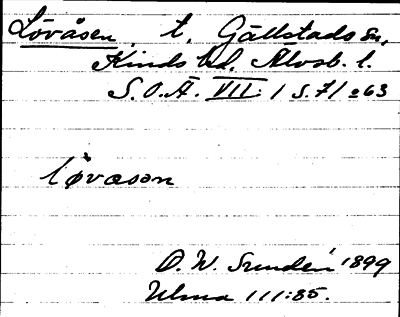 Lövåsen t. Gällstads sn,
Kinds hd. Älvsb. l.
S.O.Ä. VII: 1 s. 71 263
lövåsən
O. W. Sundén 1899
Ulma 111:85.